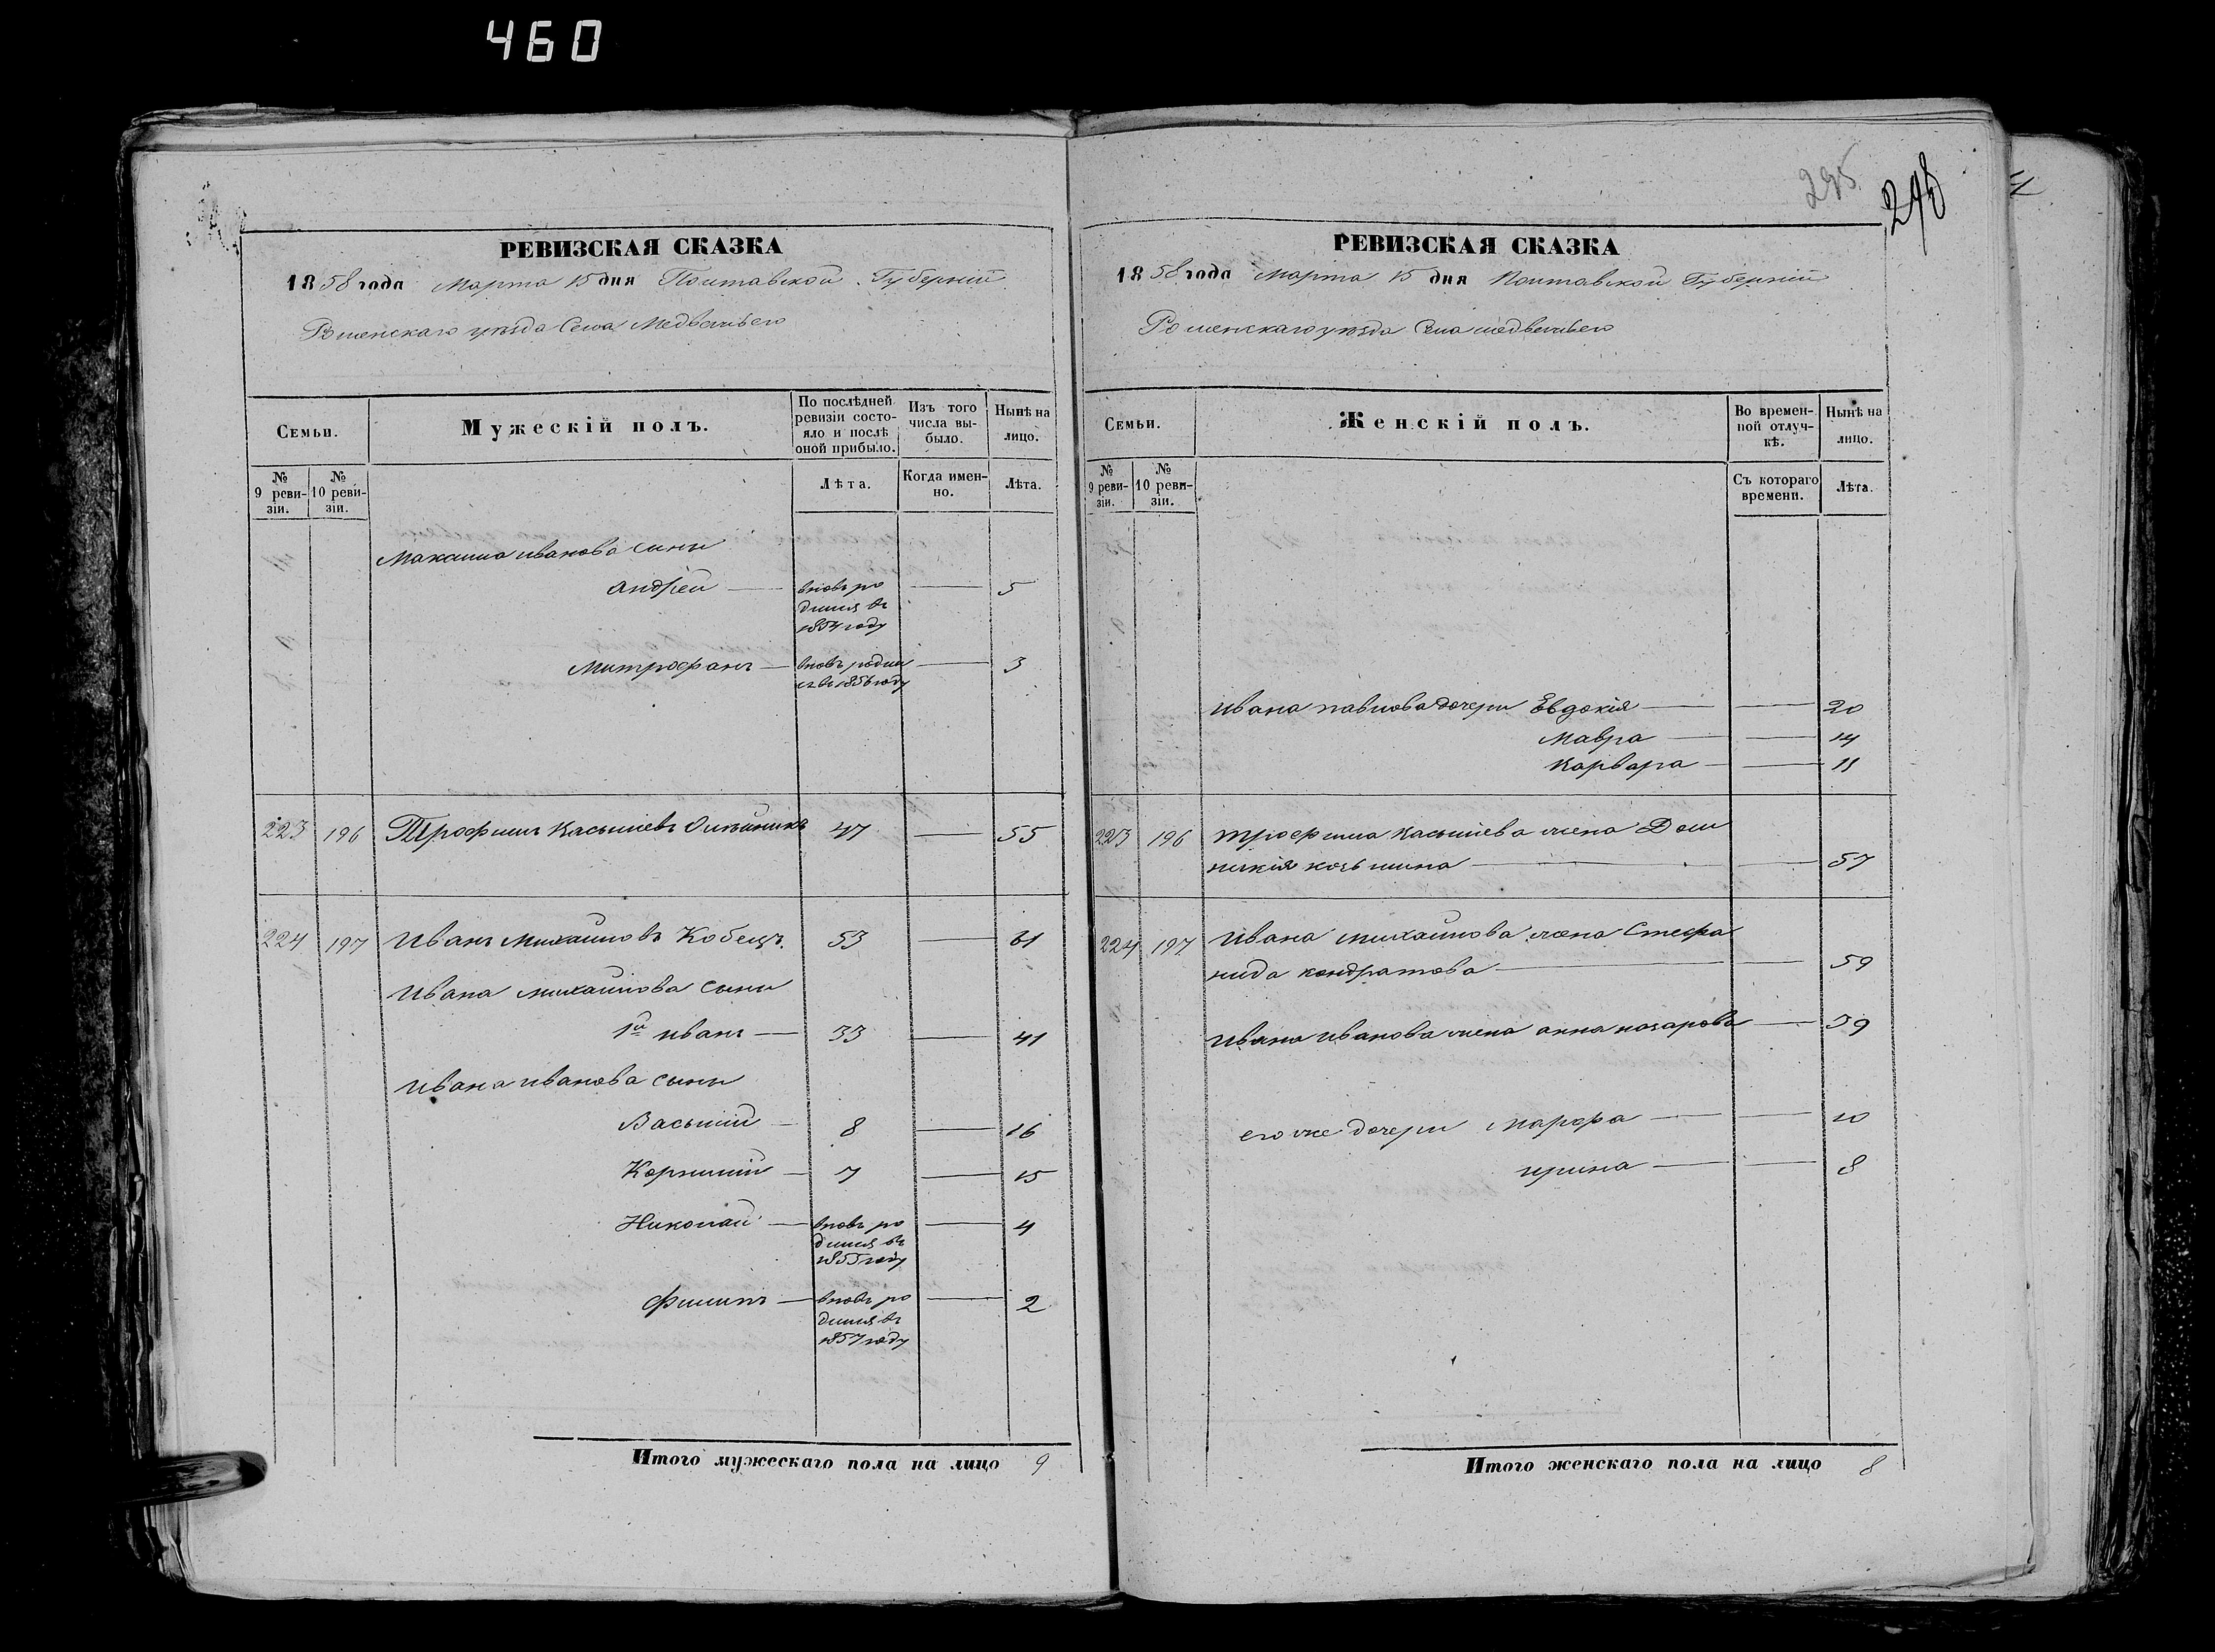 460
295
РЕВИЗСКАЯ СКАЗКА
1858 года Марта 15 дня Полтавской Губерніи
Роменскаго уѣзда Села Медвежьего
Семьи.
Мужескій полъ.
По послѣдней ревизіи состояло и послѣ оной прибыло.
Изъ того числа выбыло.
Нынѣ на лицо.
№ 9 ревизіи.
№ 10 ревизіи.
Лѣта.
Когда именно.
Лѣта.
Максима иванова сыны
андрей — вновь ро — 5
дился въ
1854 году
Митрофанъ — вновь родил — 3
ся въ 1856 году
223 196 Трофимъ Касьяневъ Олѣйникъ 47 — 55
224 197 Иванъ Михайловъ Кобецъ. 53 — 61
Ивана михайлова сыны
1й иванъ — 33 — 41
Ивана иванова сыны
Василій — 8 — 16
Корнилій — 7 — 15
Николай — вновь ро — 4
дился въ
1855 году
Филипъ — вновь ро — 2
дился въ
1857 году
Итого мужескаго пола на лицо 9
РЕВИЗСКАЯ СКАЗКА
1858 года Марта 15 дня Полтавской Губерніи
Роменскаго уѣзда Села медвежьего
Семьи.
Женскій полъ.
Во временной отлучкѣ.
Нынѣ на лицо.
№ 9 ревизіи.
№ 10 ревизіи.
Съ котораго времени.
Лѣта.
Ивана павлова дочери Евдокія — — 20
Мавра — — 14
Варвара — — 11
223 196 трофима касьянева жена Дом
никія козьмина — — 57
224 197 Ивана михайлова жена Стефа
нида кондратова — — 59
Ивана Иванова жена анна назарова — 39
его же дочери Марфа — — 10
ирина — — 8
Итого женскаго пола на лицо 8